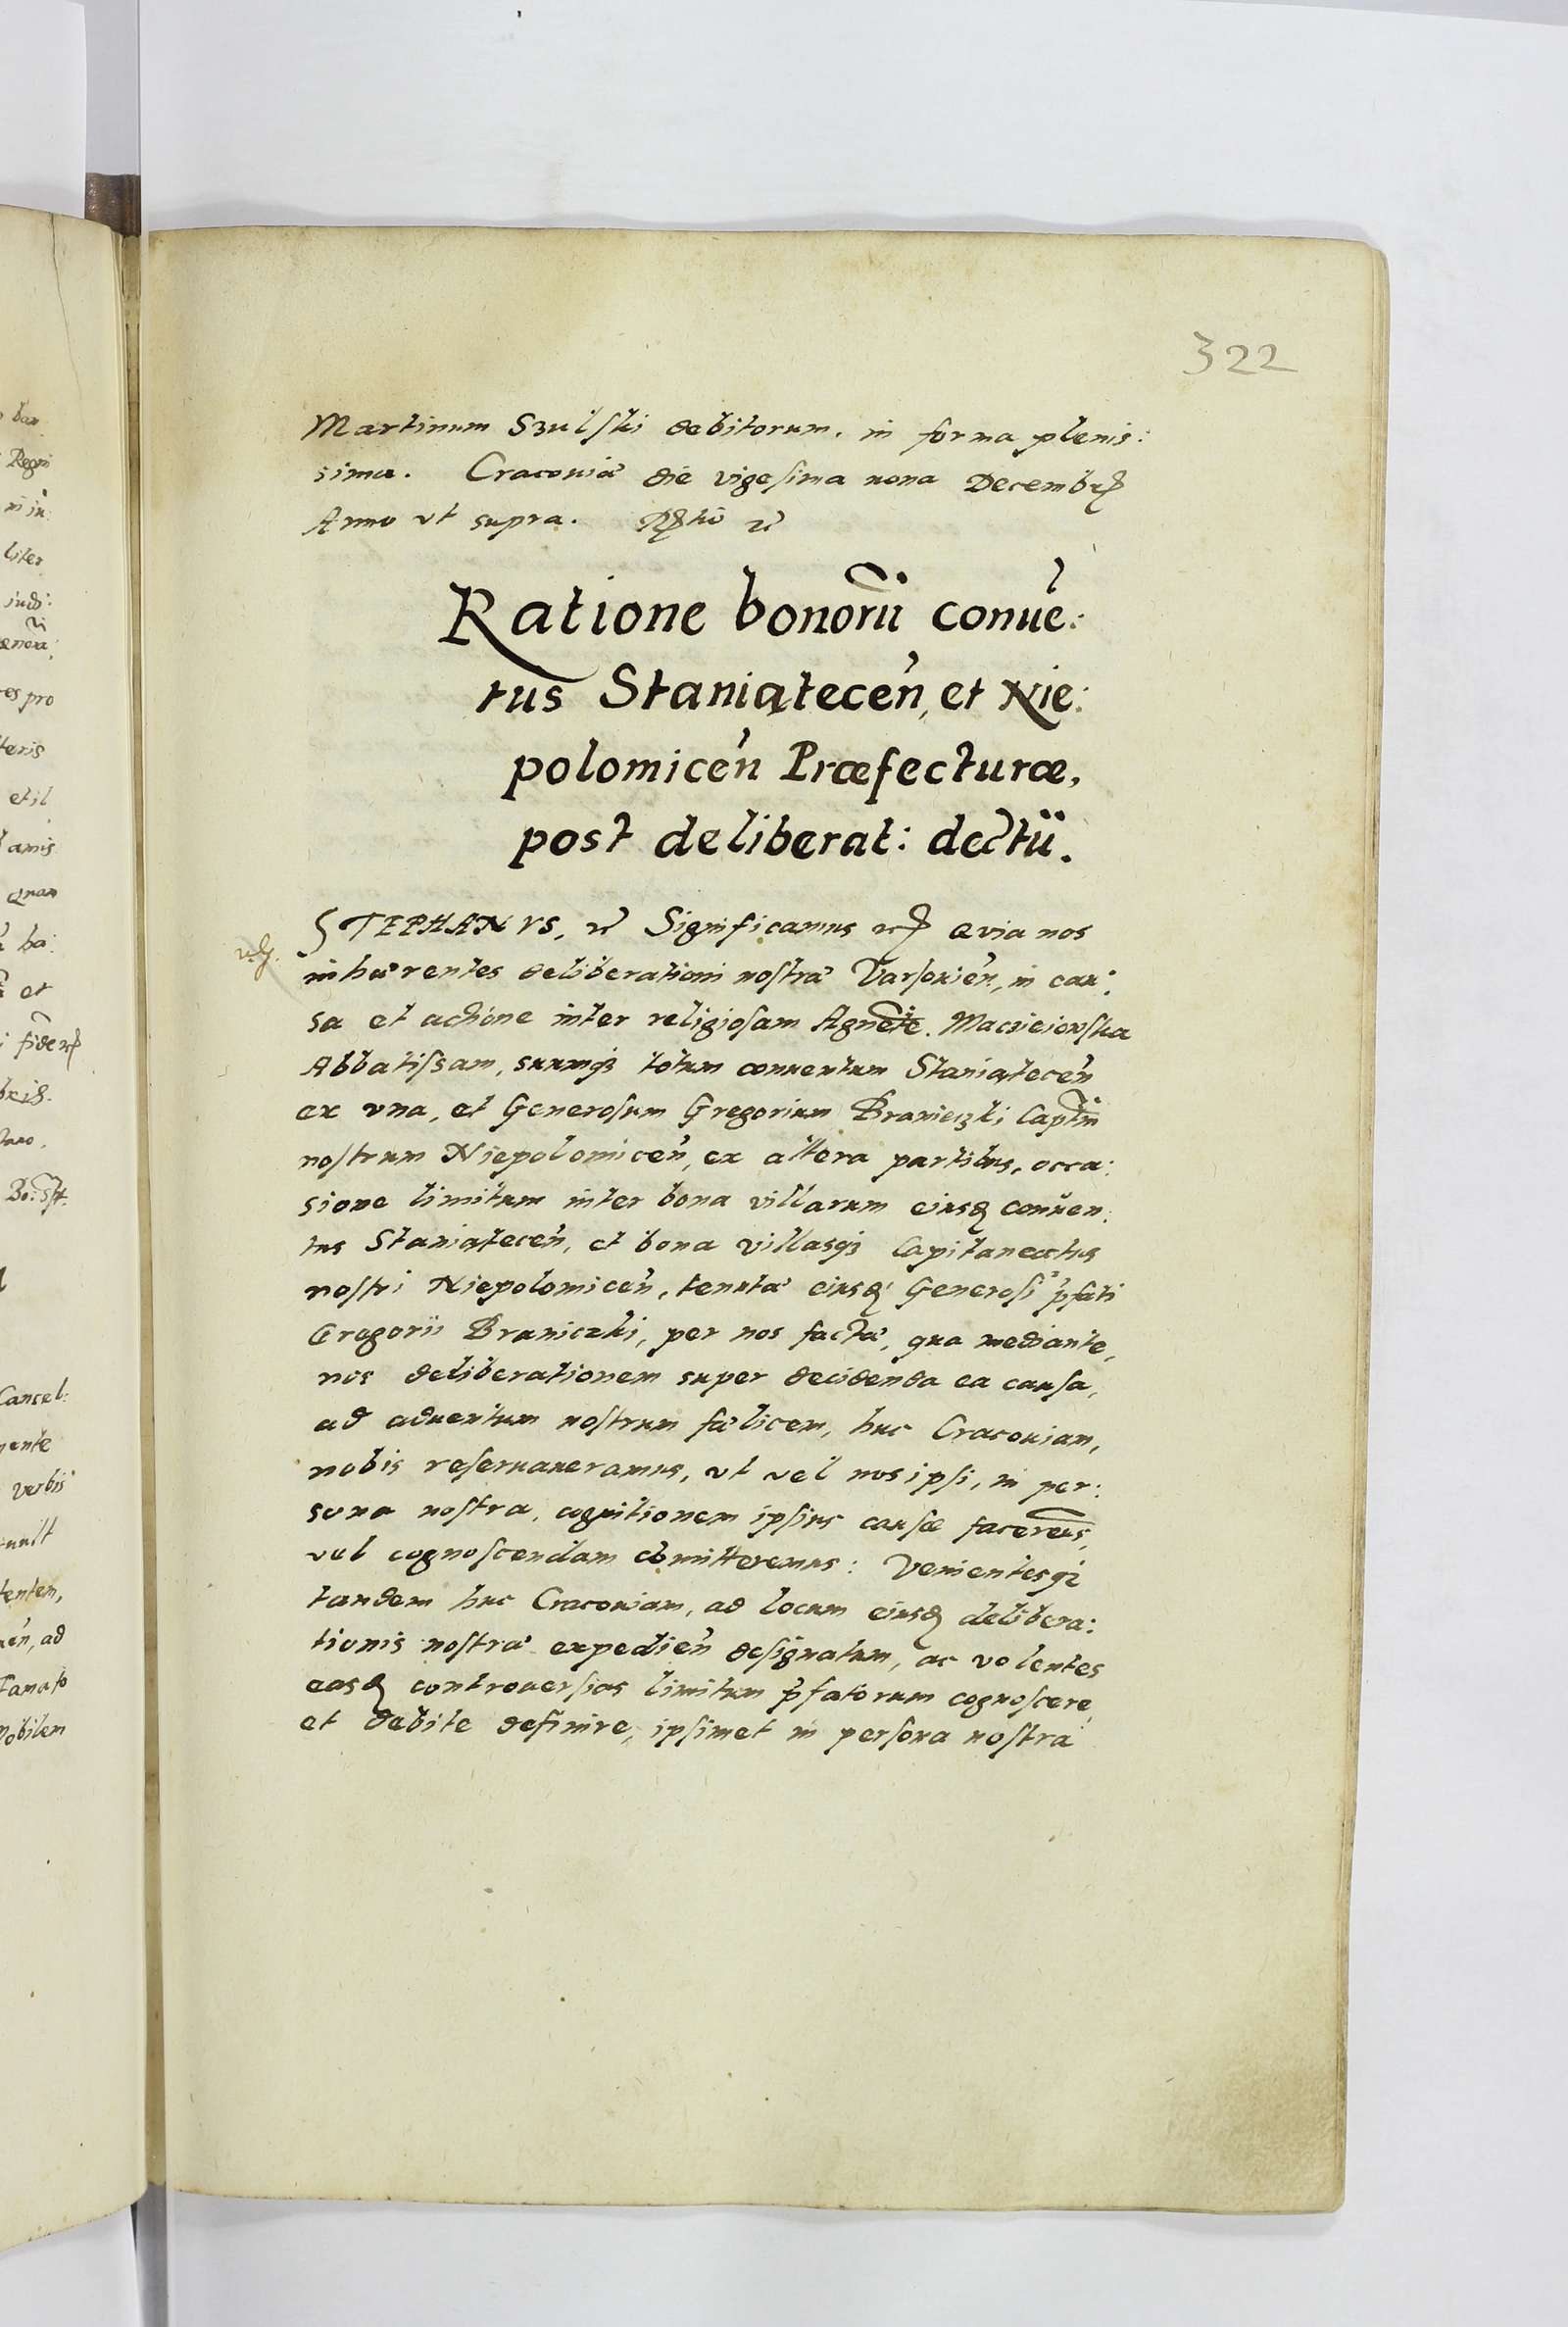 322
Martinum Szulski debitorum. in forma plenis:
sima. Cracouiæ die vigesima nona Decembr
Anno vt supra.
Ratione bonorũ conuẽ:
tus Staniątecen̄, et Nie:
polomicen̄ Præfecturæ,
post deliberat: dectũ.
STEPHANVS, Significamus Quia nos
inhærentes deliberationi nostræ Varsouien̄, in cau:
sa et actione inter religiosam Agnete. Macieiouska
Abbatissam, suumq3 totum conuentum Staniątecen̄
ex vna, et Generosum Gregorium Braniczki Captm̄
nostrum Niepolomicen̄, ex altera partibus, occa:
sione limitum inter bona villarum eiusd conuen:
tus Staniątecen̄, et bona villasq3 Capitaneatus
nostri Niepolomicen̄, tenutæ eiusd Generosi pfati
Gregorii Braniczki, per nos factæ, qua mediante,
nos deliberationem super decidenda ea causa,
ad aduentum nostrum fælicem, huc Cracouiam,
nobis reseruaueramus, vt vel nos ipsi, in per:
sona nostra, cognitionem ipsius causæ faceremus,
vel cognoscendam cõmitteremus: Venientesq3
tandem huc Cracouiam, ad locum eiusd delibera:
tionis nostræ expedien̄ designatum, ac volentes
easd controuersias limitum p̄fatorum cognoscere,
et debite definire, ipsimet in persona nostra